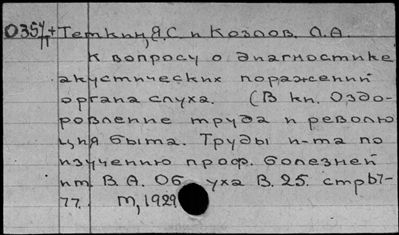 О354/т + Теткин, Я.С. и Козлов. П.А.
К вопросу о диагностике
акустических поражений
органа слуха. (В кн. Оздо-
ровление труда и револю
ция быта. Труды и-та по
изучению проф. болезней
им. В. А. Об уха В. 25. стр 67-
77. М, 1929